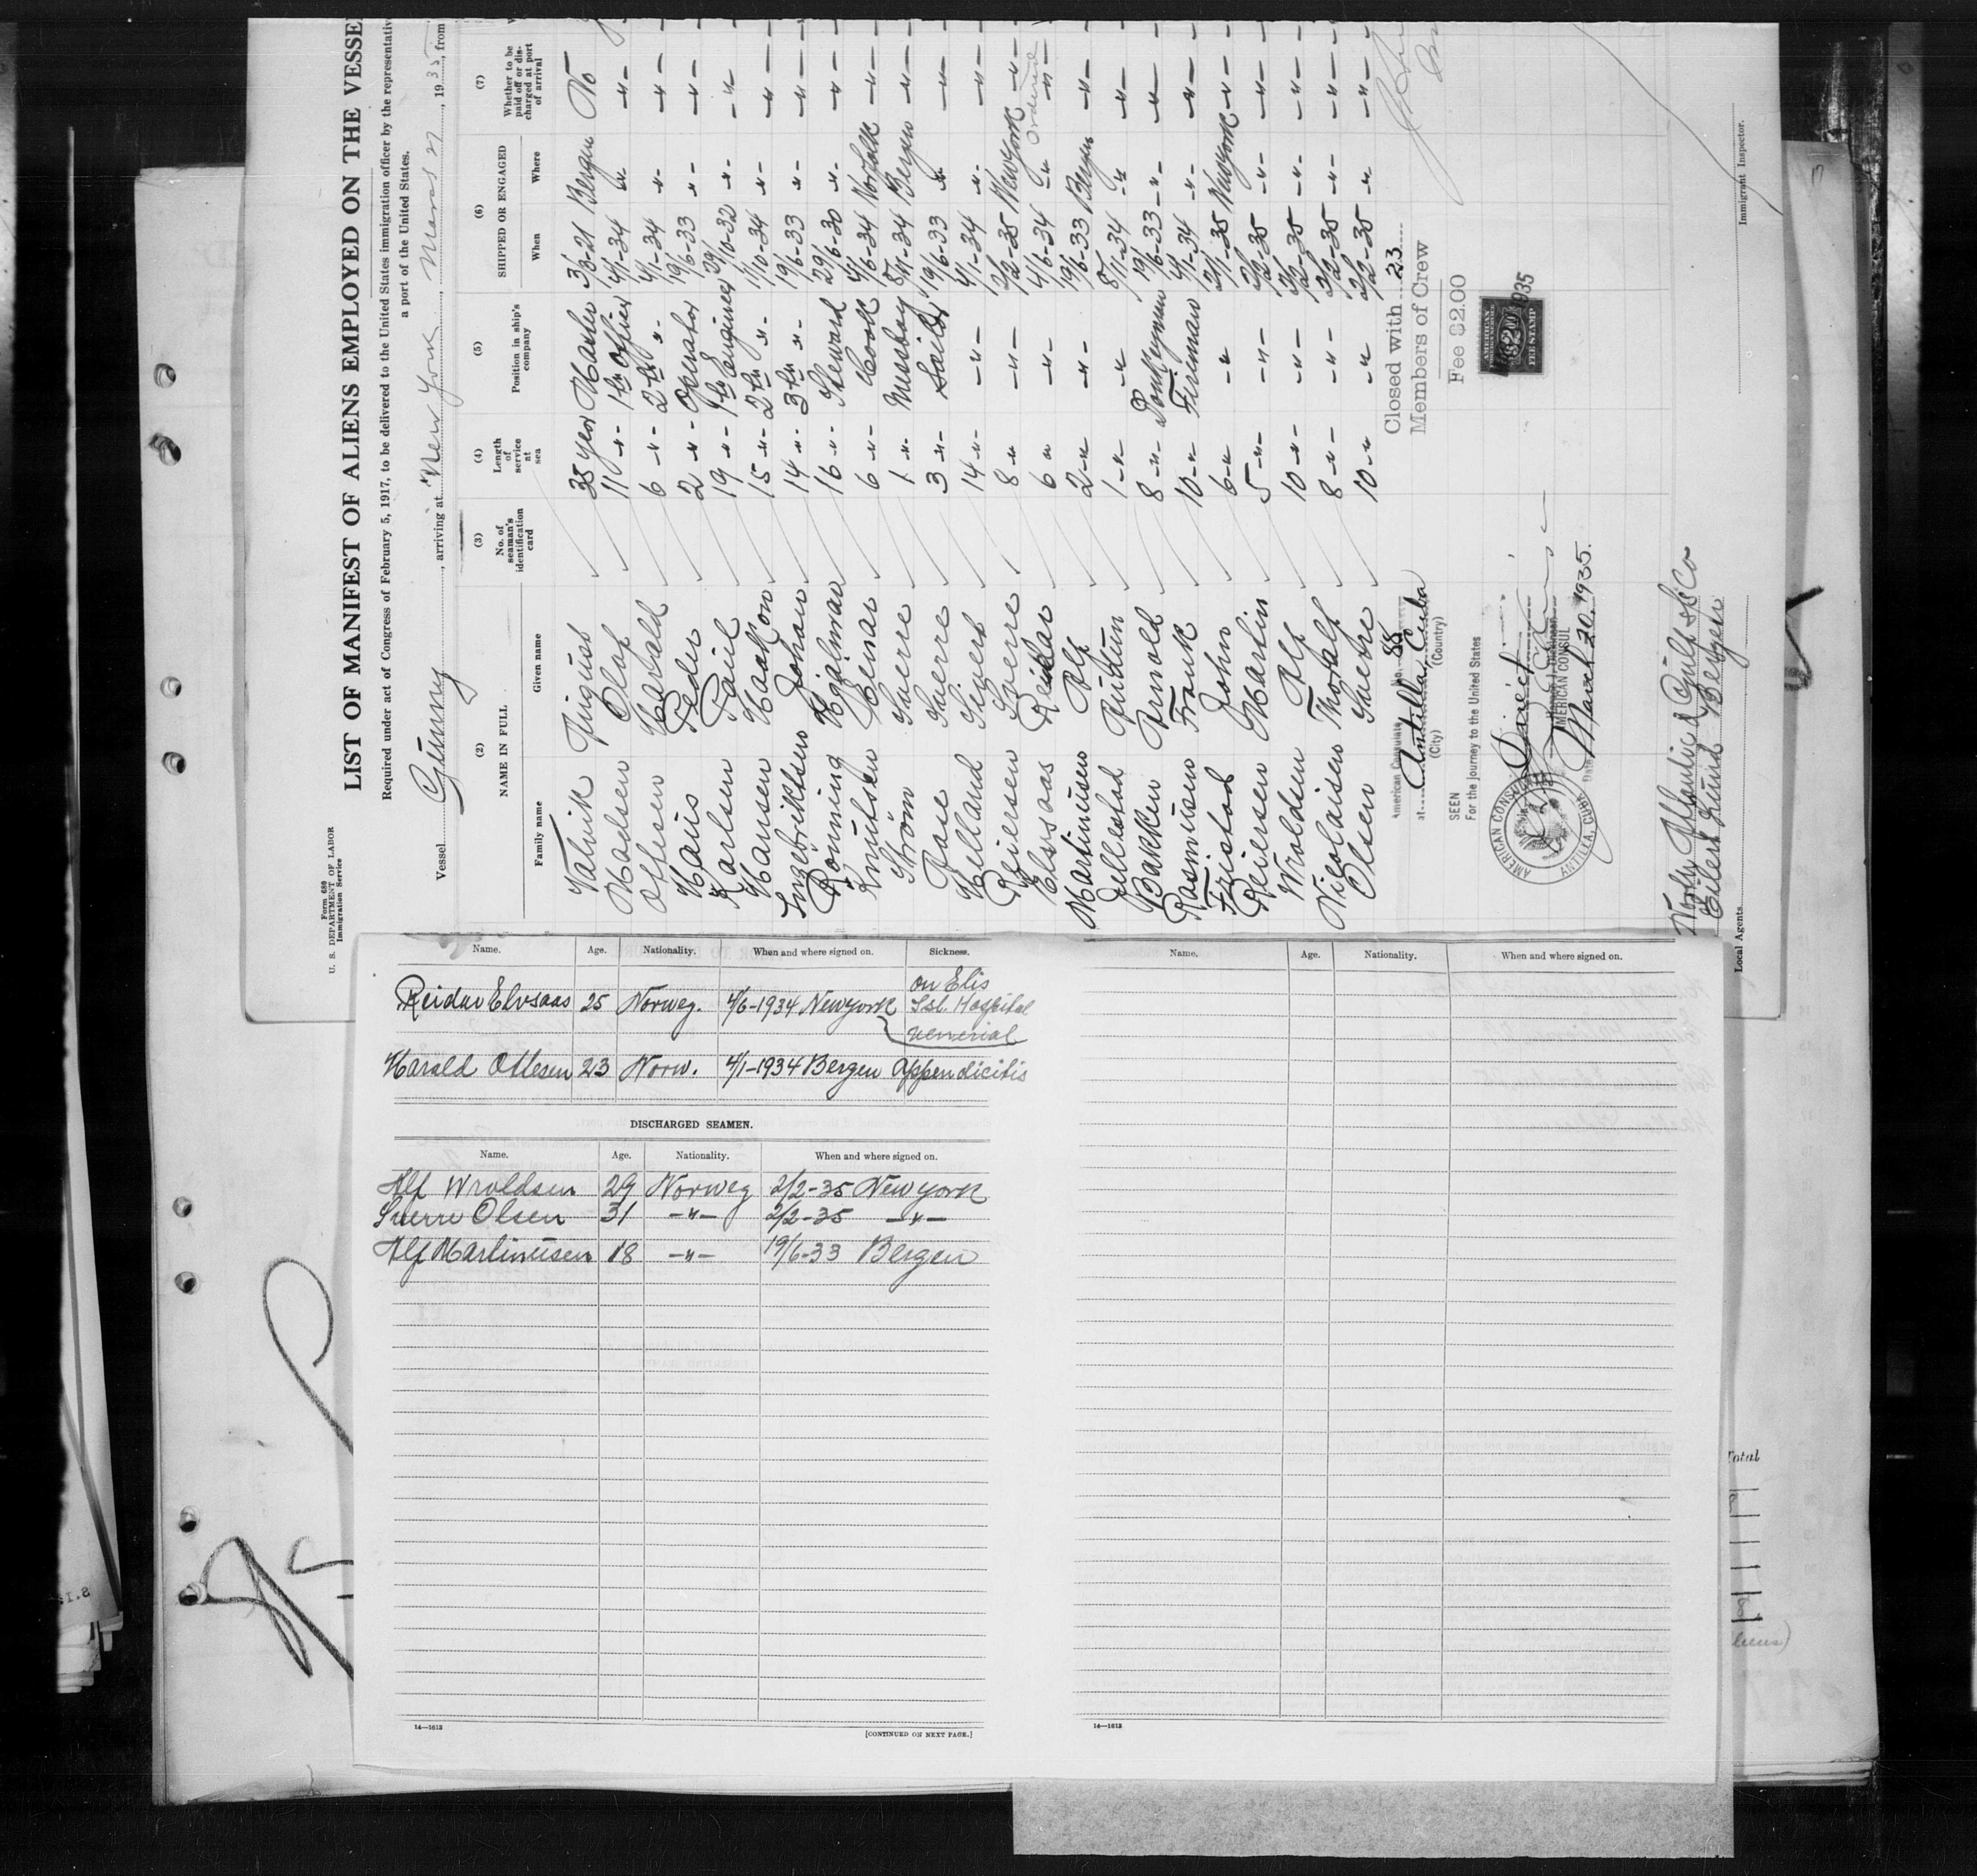 Form 680
U. S. DEPARTMENT OF LABOR
Immigration Service
LIST OF MANIFEST OF ALIENS EMPLOYED ON THE VESSE
Required under act of Congress of February 5, 1917, to be delivered to the United States immigration officer by the representativ
a port of the United States.
Vessel Gunny, arriving at New York, Mars 27, 1935, from
(2) (3) (4) (5) (6) (7)
NAME IN FULL No. of seaman's identification card Length of service at sea Position in ship's company SHIPPED OR ENGAGED Whether to be paid off or discharged at port of arrival
Family name Given name When Where
Valvik 35 year Master 3/3-21 Bergen No
Madsen Olaf 11 -"- 1ste officer 4/1-34 -"- -"-
Ottesen Harald 6 -"- 2th -"- 4/1-34 -"- -"-
Haus Peder 2 -"- Operator 19/6-33 -"- -"-
Karlsen Paul 19 -"- 1th Enginer 29/10-32 -"- -"-
Hansen Haakon 15 -"- 2th -"- 1/10-34 -"- -"-
Ingebriktsen Johan 14 -"- 3th -"- 19/6-33 -"- -"-
Rönning Hjalmar 16 -"- Steward 29/6-30 -"- -"-
Knutsen Einar 6 -"- Cook 4/6-34 Norfolk -"-
Ström Sverre 1 -"- Messboy 8/11-34 Bergen -"-
Sverre 3 -"- Sailor 19/6-33 -"- -"-
Helland Sivert 14 -"- -"- 4/1-34 -"- -"-
Reiersen Sverre 8 -"- -"- 2/2-35 New York -"-
Elvsaas Reidar 6 -"- -"- 4/6-34 -"- -"-
Martinusen Alf 2 -"- -"- 19/6-33 Bergen -"-
Jellestad 1 -"- -"- 8/11-34 -"- -"-
Bakken Arnold 8 -"- Donkeyman 19/6-33 -"- -"-
Rasmusen Frank 10 -"- Fireman 4/1-34 -"- -"-
Fristad John 6 -"- -"- New York -"-
Reiersen Martin 5 -"- -"- 2/2-35 -"- -"-
Wrolden Alf 10 -"- -"- 2/2-35 -"- -"-
Nicolaisen Thoralf 8 -"- -"- 2/2-35 -"- -"-
Olsen Sverre 10 -"- -"- 2/2-35 -"- -"-
American Consulate No. 88
at Antilla, Cuba
(City) (Country)
SEEN
For the journey to the United States
Direct
AMERICAN CONSUL
Date March 20, 1935.
AMERICAN CONSUL
ANTILLA, CUBA
Closed with 23
Members of Crew
Fee $2.00
AMERICAN
$2.00
FEE STAMP
1935
Norly Atlantic & Gulf SS Co
Eilert Lund Bergen
Local Agents
Immigrant Inspector.
Name. Age. Nationality. When and where signed on. Sickness.
Reidar Elvsaas 25 Norweg. 4/6-1934 New york on Elis Isl. Hospital venerial
Harald Ottesen 23 Norw. 4/1-1934 Bergen appendicitis
DISCHARGED SEAMEN.
Name. Age. Nationality. When and where signed on.
Alf Wroldsen 29 Norweg 2/2-35 New york
Sverre Olsen 31 -"- 2/2-35 -"-
Alf Martinusen 18 -"- 19/6-33 Bergen
14—1613
[CONTINUED ON NEXT PAGE.]
Name. Age. Nationality. When and where signed on.
14—1613
Total